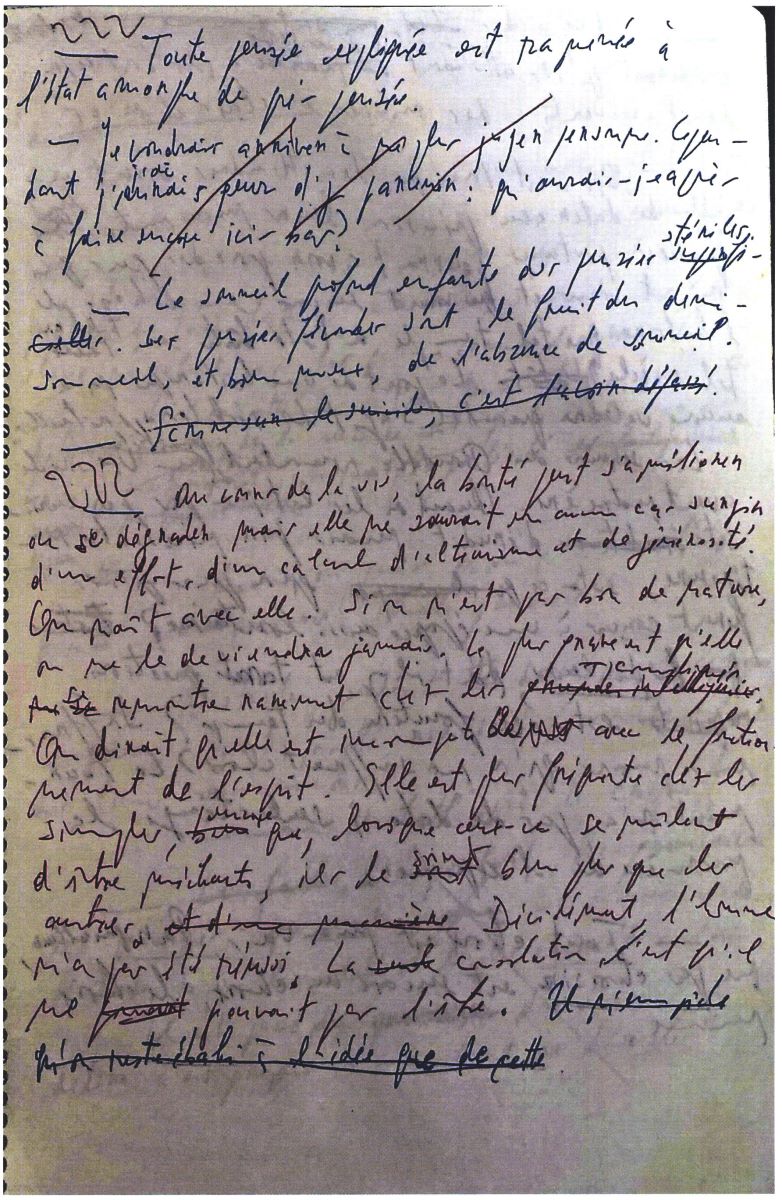 — Toute pensée expliquée est ramenée à
l'état amorphe de pré-pensée.
— Je voudrais arriver à ne plus juger personne. Cepen-
dant j'aurais peur d'y parvenir : qu'aurais-je après
à faire encore ici-bas?
— Le sommeil profond enfante des pensées stériles,
. Les pensées fécondes sont le fruit du demi-
sommeil, et, bien mieux, de l'absence de sommeil.
Écrire sur le suicide, c'est l'avoir dépassé.
— Au cours de la vie, la bonté peut s'améliorer
ou se dégrader mais elle ne saurait en aucun cas surgir
d'un effort, d'un calcul d'altruisme et de générosité.
On naît avec elle. Si on n'est pas bon de nature,
on ne le deviendra jamais. Le plus grave est qu'elle
se rencontre rarement chez les
On dirait qu'elle est incompatible avec le fonction-
nement de l'esprit. Elle est plus fréquente chez les
simples, encore que, lorsque ceux-ci se mêlent
d'être méchants, ils le sont bien plus que les
autres. et d'une manière Décidément, l'homme
n'a pas été réussi. La seule consolation c'est qu'il
ne pouvait pas l'être.
qu'on reste ébahi à l'idée que de cette